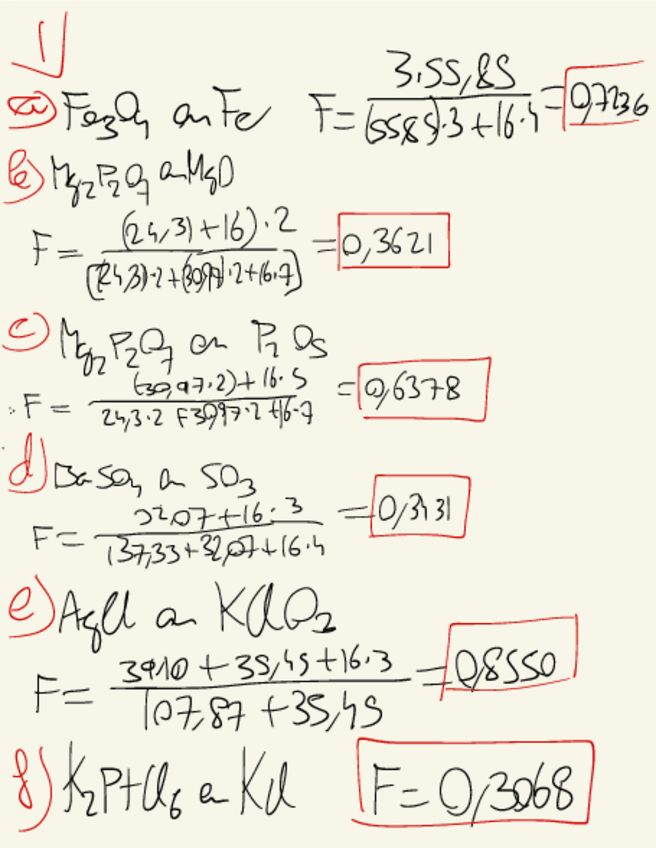 1
a) Fe3O4 en Fe F = 3.55,85 / (55,85).3+16.4 = 0,7236
b) Mg2P2O7 en MgO
F = (24,31+16).2 / (24,3).2+(30,97).2+16.7 = 0,3621
c) Mg2P2O7 en P2O5
F = (30,97.2)+16.5 / 24,3.2+30,97.2+16.7 = 0,6378
d) BaSO4 en SO3
F = 32,07+16.3 / 137,33+32,07+16.4 = 0,3431
e) AgCl en KClO3
F = 39,10+35,45+16.3 / 107,87+35,45 = 0,8550
f) K2PtCl6 en KCl F = 0,3068